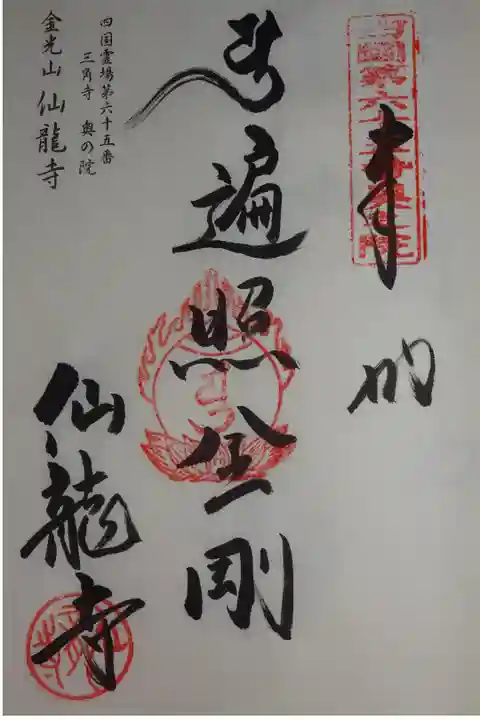 四國第六十五番奥之院
奉納
南無遍照金剛
四国霊場第六十五番
三角寺 奥の院
金光山 仙龍寺
仙龍寺